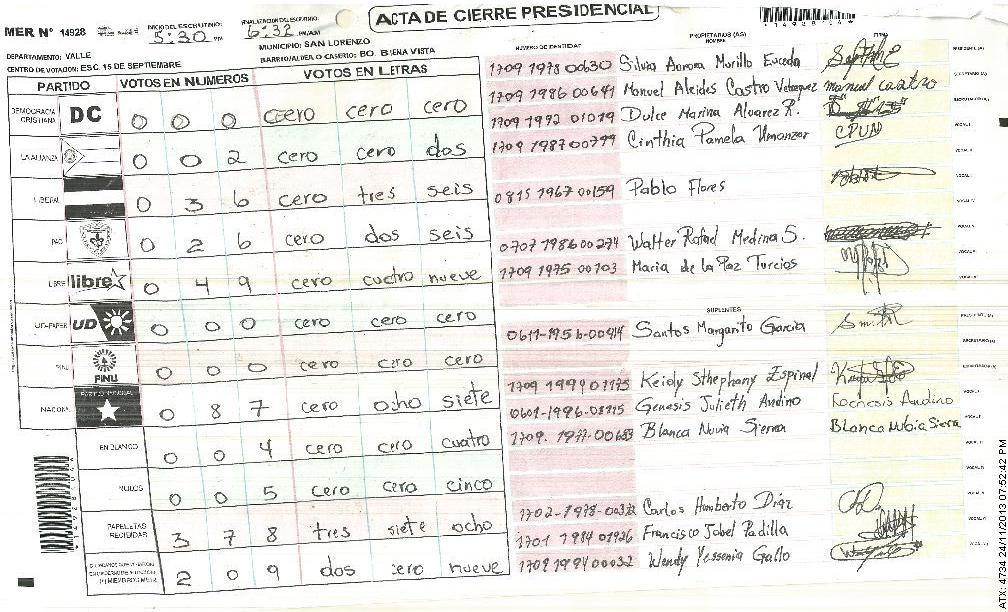 ACTA DE CIERRE PRESIDENCIAL
MER N° 14928
INICIO DEL ESCRUTINIO: 5:30 PM
FINALIZACION DEL ESCRUTINIO: 6:32 PM/AM
DEPARTAMENTO: VALLE
MUNICIPIO: SAN LORENZO
CENTRO DE VOTACION: ESC. 15 DE SEPTIEMBRE
BARRIO/ALDEA O CASERIO: BO. BUENA VISTA
PARTIDO VOTOS EN NUMEROS VOTOS EN LETRAS
DEMOCRACIA CRISTIANA DC 0 0 0 cero cero cero
LA ALIANZA 0 0 2 cero cero dos
LIBERAL 0 3 6 cero tres seis
PAC 0 2 6 cero dos seis
LIBRE libre 0 4 9 cero cuatro nueve
UD-FAPER UD 0 0 0 cero cero cero
PINU PINU 0 0 0 cero cero cero
NACIONAL 0 8 7 cero ocho siete
EN BLANCO 0 0 4 cero cero cuatro
NULOS 0 0 5 cero cero cinco
PAPELETAS RECIBIDAS 3 7 8 tres siete ocho
2 0 9 dos cero nueve
NUMERO DE IDENTIDAD PROPIETARIOS (AS) NOMBRE FIRMA
1709 1978 00630 Silvia Aurora Murillo Euceda
1709 1986 00641 Manuel Aleides Castro Velazquez manuel castro
1709 1972 01019 Dulce Marina Alvarez R.
1709 1987 00799 Cinthia Pamela Umanzor CPUAD
0815 1967 00159 Pablo Flores
0707 1986 00274 Walter Rafael Medina S.
1709 1975 00703 Maria de la Paz Turcios
SUPLENTES
0611-1956-00914 Santos Margarito Garcia
1709 1994 01175 Keidy Sthephany Espinal
0601-1996-03115 Genesis Julieth Andino Genesis Andino
1709. 1977-00653 Blanca Nuvia Sierra Blanca Nubia Sierra
1702-1978-00332 Carlos Humberto Díaz
1701 1984 01926 Francisco Jobel Padilla
1709 1994 00032 Wendy Yessenia Gallo
*14928 04A*
ATX: 4734 24/11/2013 07:52:42 PM